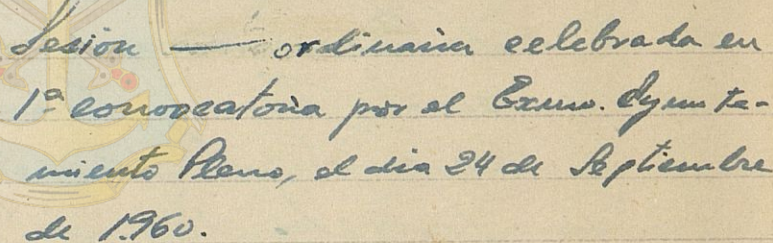 Sesion — ordinaria celebrada en
1ª convocatoria por el Excmo. Ayunta-
miento Pleno, el dia 24 de Septiembre
de 1960.